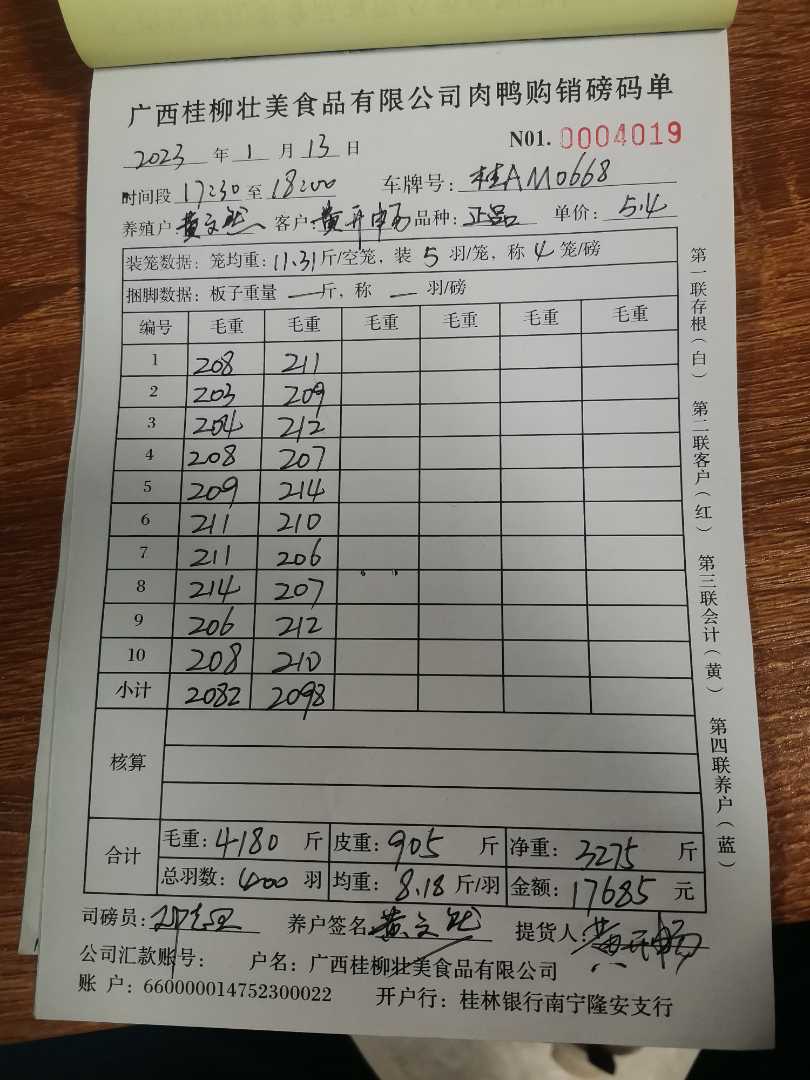 广西桂柳壮美食品有限公司肉鸭购销磅码单
2023 年 1 月 13 日 N01. 0004019
时间段 17:30 至 18:00 车牌号: 桂AM0668
养殖户 黄文 客户: 黄开畅 品种: 正品 单价: 5.4
装笼数据: 笼均重: 11.31 斤/空笼, 装 5 羽/笼, 称 4 笼/磅
捆脚数据: 板子重量 — 斤, 称 — 羽/磅
编号 毛重 毛重 毛重 毛重 毛重 毛重
1 208 211
2 203 209
3 204 212
4 208 207
5 209 214
6 211 210
7 211 206
8 214 207
9 206 212
10 208 210
小计 2082 2098
核算
合计
毛重: 4180 斤 皮重: 905 斤 净重: 3275 斤
总羽数: 400 羽 均重: 8.18 斤/羽 金额: 17685 元
司磅员: 养户签名 黄文 提货人: 黄开畅
公司汇款账号: 户名: 广西桂柳壮美食品有限公司
账 户: 660000014752300022 开户行: 桂林银行南宁隆安支行
第一联存根(白) 第二联客户(红) 第三联会计(黄) 第四联养户(蓝)